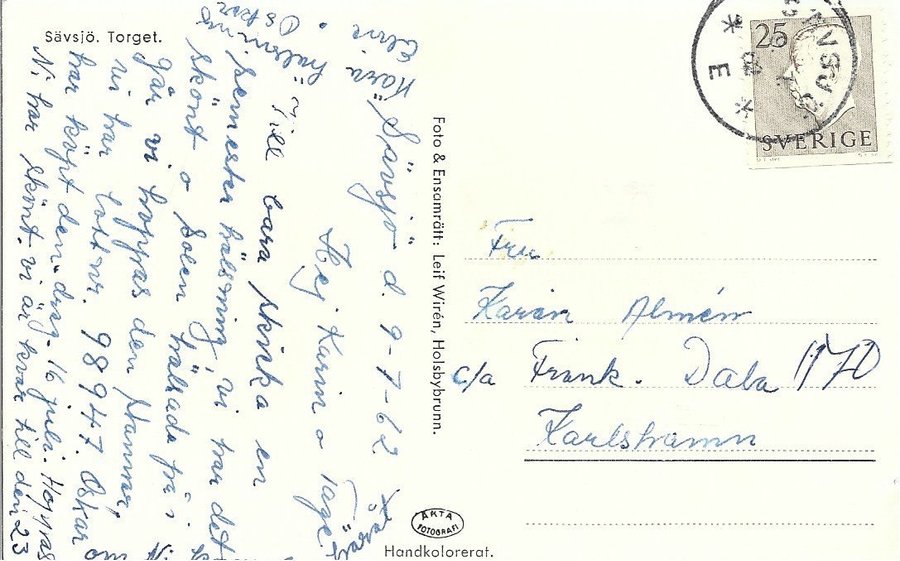 Sävsjö. Torget.
Sävsjö d. 9-7-62
Hej Karin o Tage.
Vill bara skicka en
semester hälsning, vi har det
skönt o Solen
går vi hoppas den stannar,
vi har lott nr. 98947. Oskar
har köpt den. drag. 16 juli. Hoppas
Ni har skönt. vi är kvar till den 23
Kära hälsning
Oskar
Elvie
Foto & Ensamrätt: Leif Wirén, Holsbybrunn.
ÄKTA
FOTOGRAFI
Handkolorerat.
SÄVSJÖ
* E *
25
SVERIGE
Fru
Karin Almén
c/a Frank. Dala 1170
Karlshamn